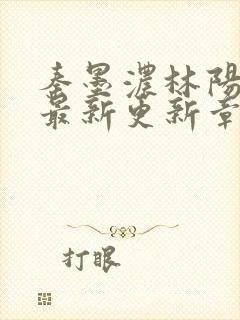 秦墨濃林陽
最新更新章
打眼